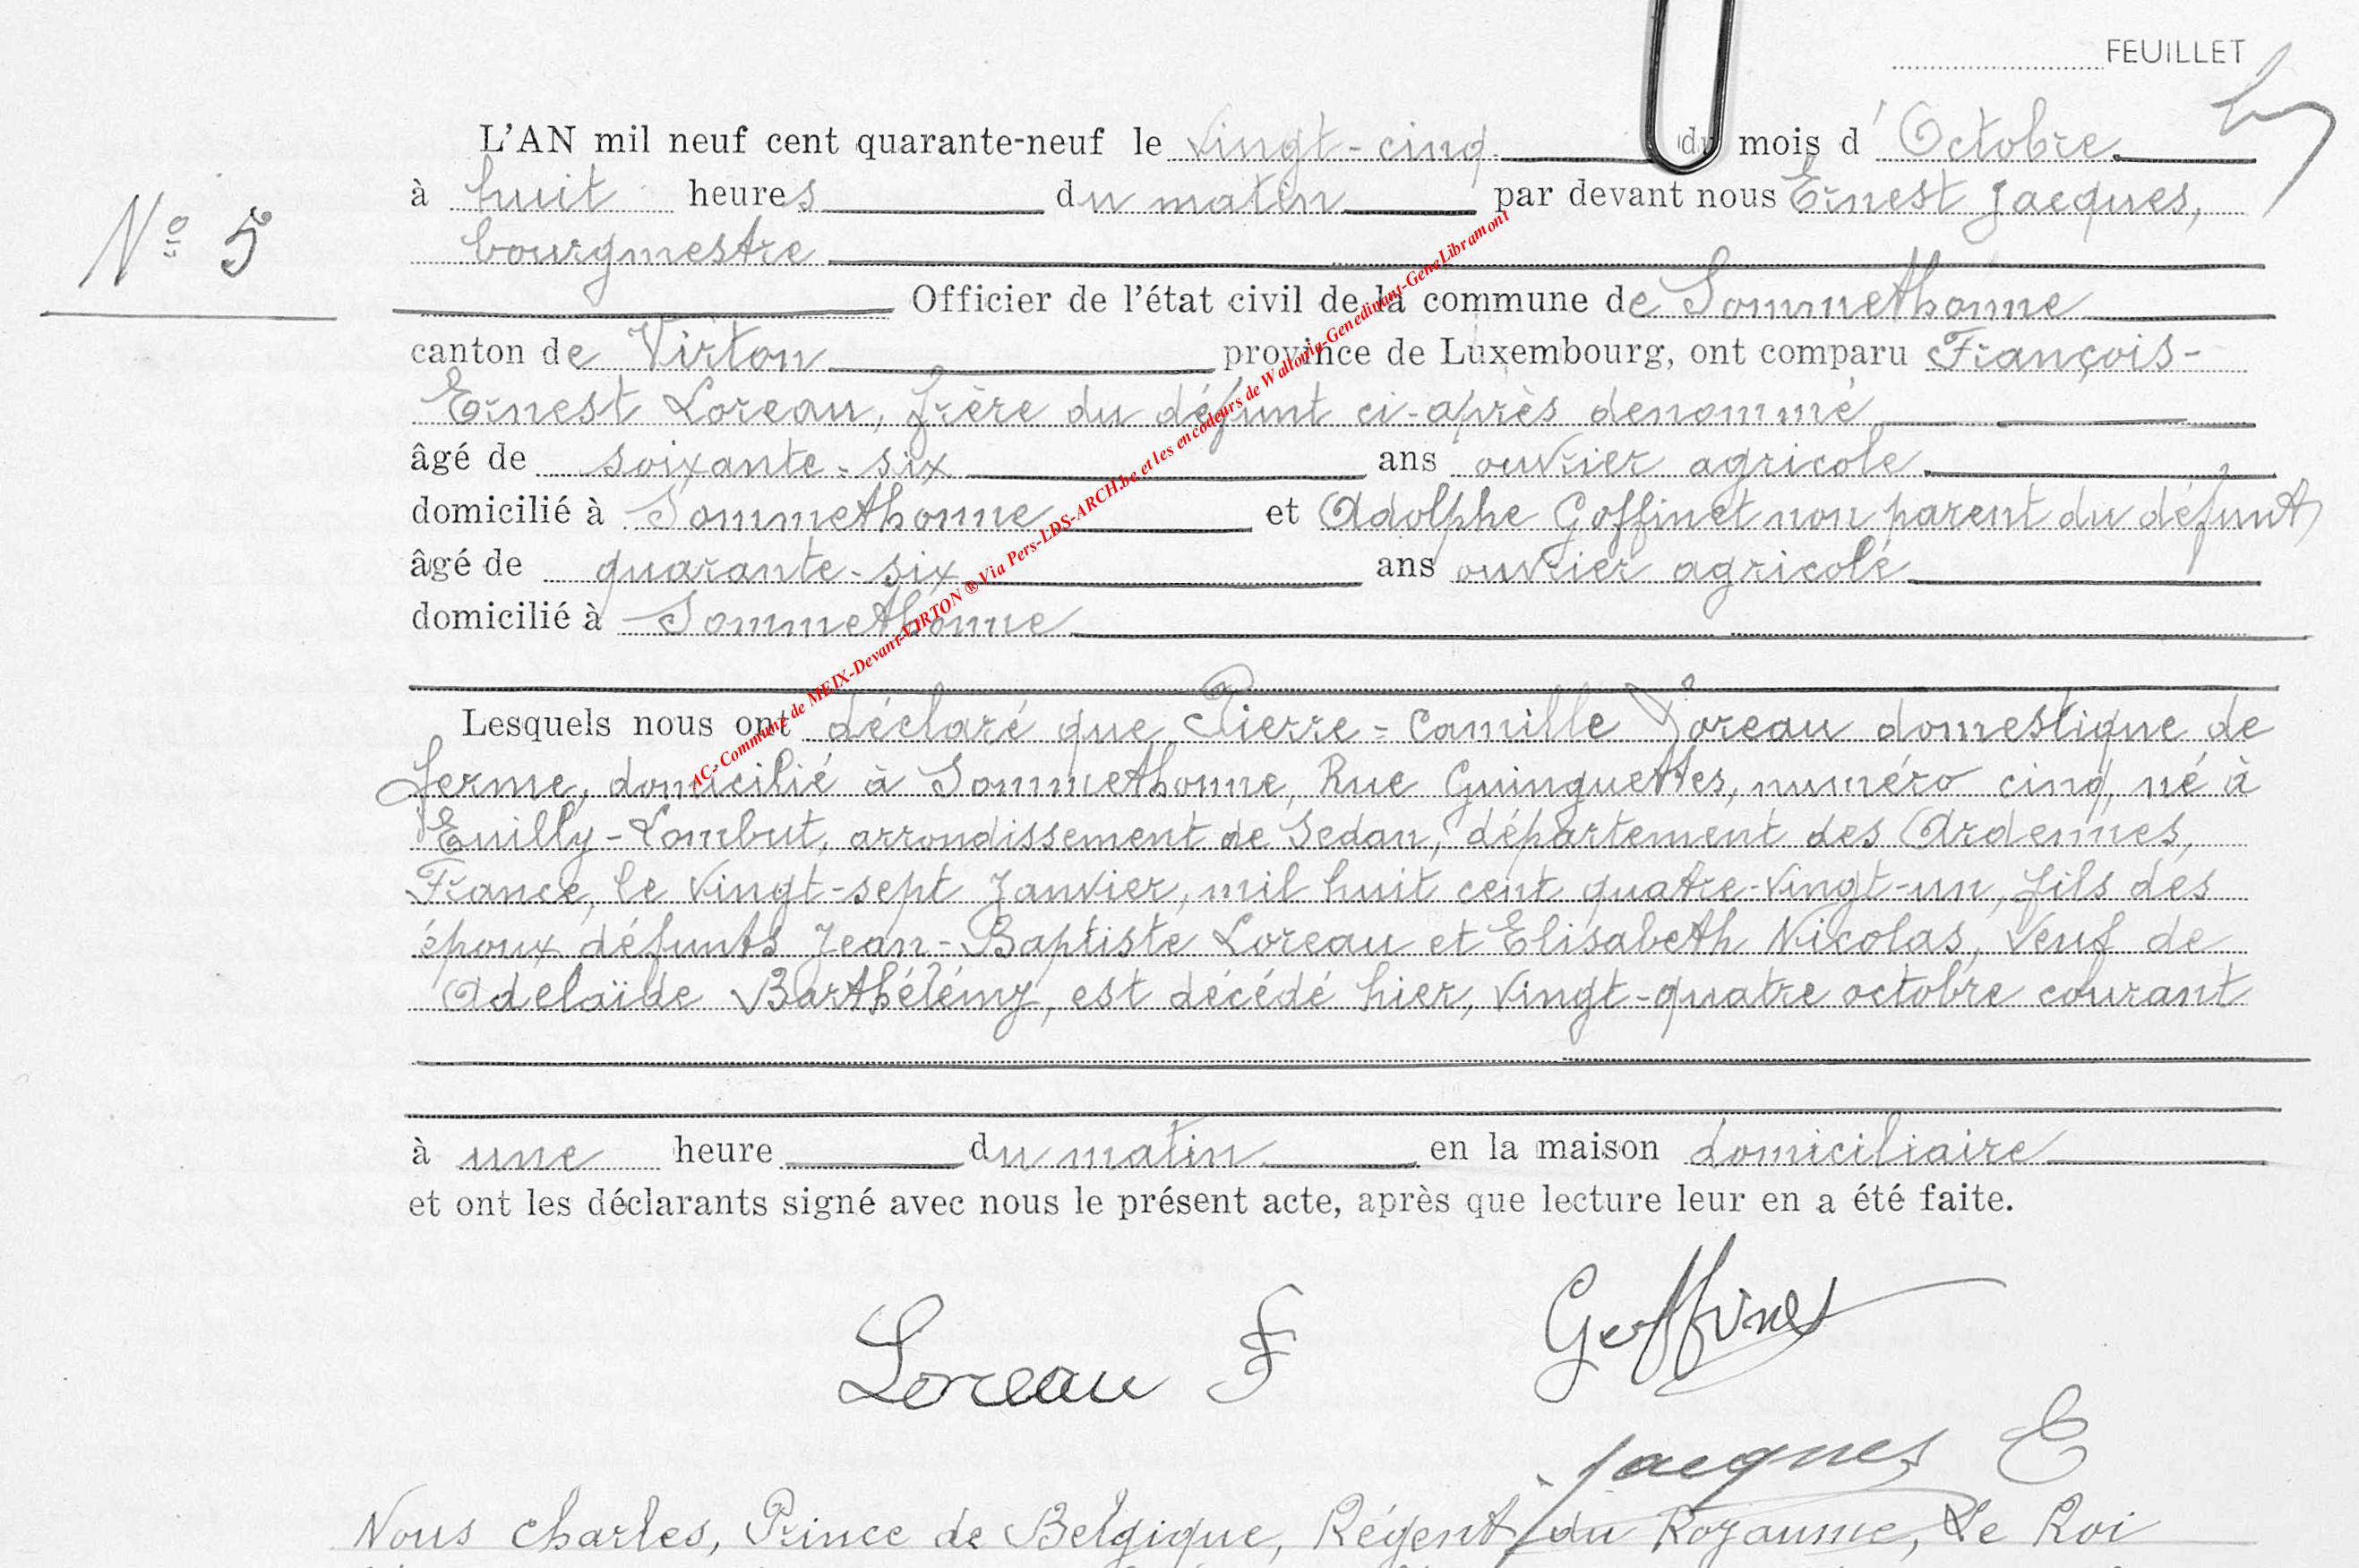 FEUILLET
L'AN mil neuf cent quarante-neuf le vingt-cinq du mois d'Octobre
à huit heures du matin par devant nous Ernest Jacques,
N° 5
bourgmestre
Officier de l'état civil de la commune de Sommethonne
canton de Virton province de Luxembourg, ont comparu François-
Ernest Loreau, frère du défunt ci-après denommé
âgé de soixante-six ans ouvrier agricole
domicilié à Sommethonne et Adolphe Goffinet non parent du défunt
âgé de quarante-six ans ouvrier agricole
domicilié à Sommethonne
AC- Commune de MEIX-Devant-VIRTON ® Via Pers-LDS-ARCH.be et les encodeurs de Wallonia-Genedinant-GeneLibramont
Lesquels nous ont déclaré que Pierre-Camille Loreau domestique de
ferme, domicilié à Sommethonne, Rue Guinguettes, numéro cinq, né à
Euilly-Lombut, arrondissement de Sedan, département des Ardennes,
France, le vingt-sept Janvier, mil huit cent quatre-vingt-un, fils des
époux défunts Jean-Baptiste Loreau et Elisabeth Nicolas, Veuf de
Adelaïde Barthélémy, est décédé hier, vingt-quatre octobre courant
à une heure du matin en la maison domiciliaire
et ont les déclarants signé avec nous le présent acte, après que lecture leur en a été faite.
Loreau F Goffinet
Jacques E
Nous Charles, Prince de Belgique, Régent du Royaume, Le Roi